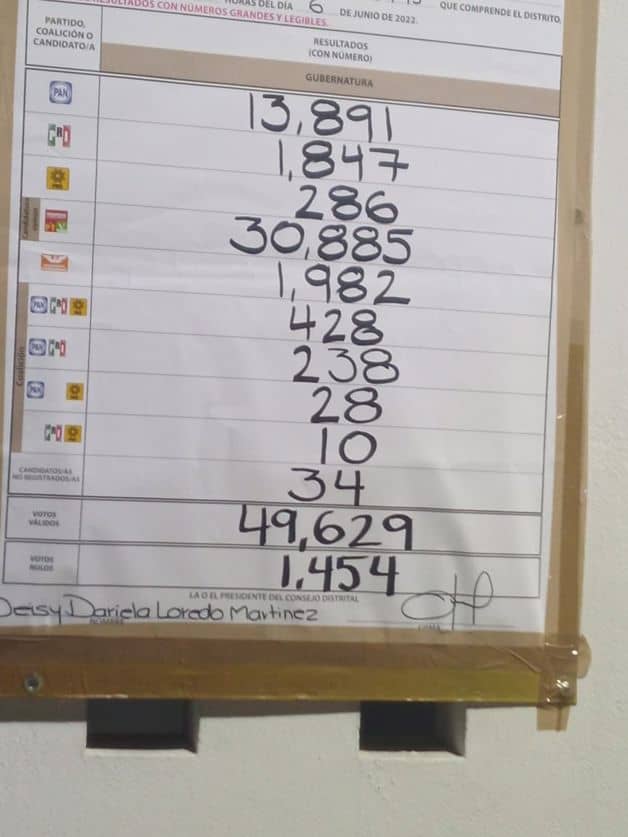 RESULTADOS CON NÚMEROS GRANDES Y LEGIBLES.
HORAS DEL DÍA 6 DE JUNIO DE 2022.
QUE COMPRENDE EL DISTRITO,
PARTIDO,
COALICIÓN O
CANDIDATO/A
RESULTADOS
(CON NÚMERO)
GUBERNATURA
PAN 13,891
PRI 1,847
286
30,885
1,982
Coalición
PAN PRI 428
PAN PRI 238
PAN 28
PRI 10
CANDIDATOS/AS
NO REGISTRADOS/AS
34
VOTOS
VÁLIDOS
49,629
VOTOS
NULOS
1,454
LA O EL PRESIDENTE DEL CONSEJO DISTRITAL
Deisy Dariela Loredo Martinez
NOMBRE